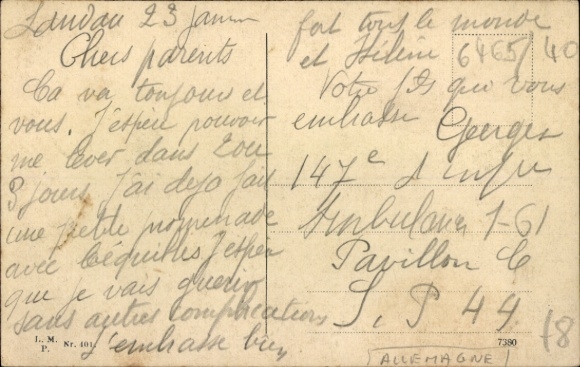 Landau 23 janvier
Chers parents
Ca va toujours et
vous. J'espere pouvoir
me lever dans 2 ou
3 jours j'ai dejo fait
une petite promenade
avec béquilles j'espere
que je vais guerir
sans autres complications
J'embrasse bien
fort tout le monde
et Hélène
Votre fils qui vous
embrasse Georges
147e d infie
Ambulance 1-61
Pavillon C
S. P 44
6465/40
L. M.
P. Nr. 401.
7380
ALLEMAGNE
18